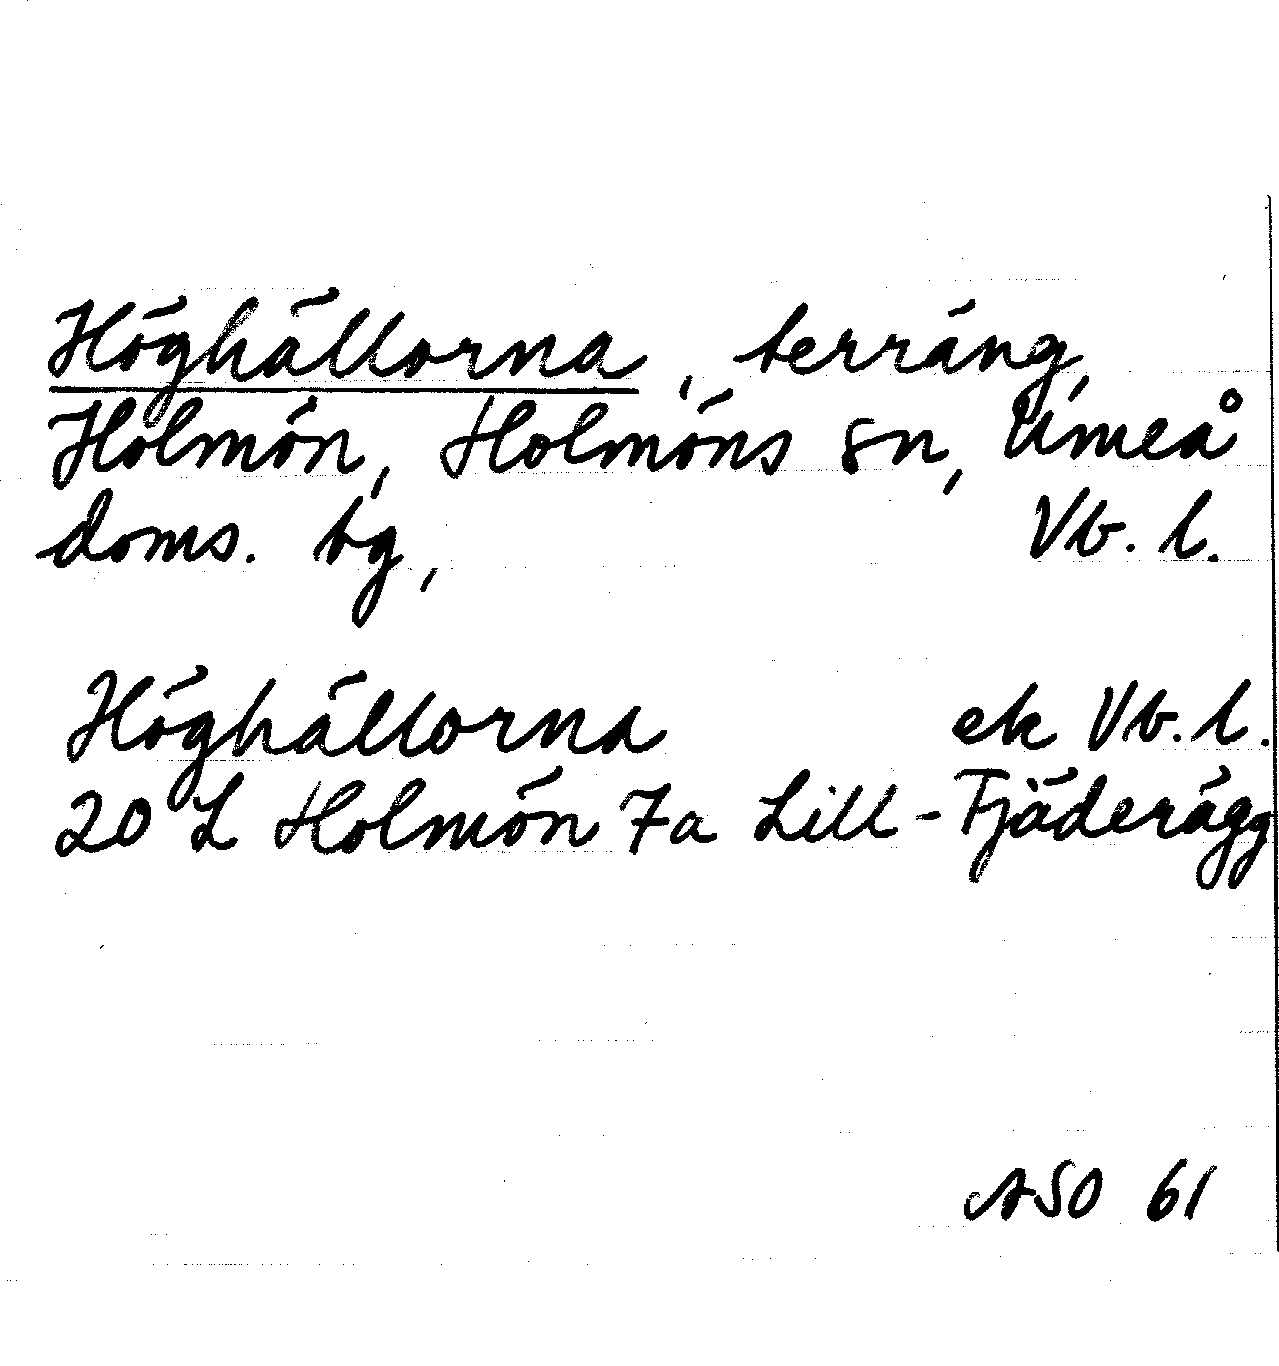 Höghällorna, terräng,
Holmön, Holmöns sn, Umeå
doms. tg, Vb. l.
Höghällorna ek Vb. l.
20 L Holmön 7a Lill-Fjäderägg
ASO 61